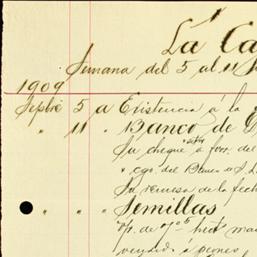 La Ca
Semana del 5 al 11
1909
Sepbre 5 a Existencia á la
" 11 " Banco de
Su cheque a/ofav. del
a cgo. del Banco de
Su remesa de la fech
" " " Semillas
vendido á peones